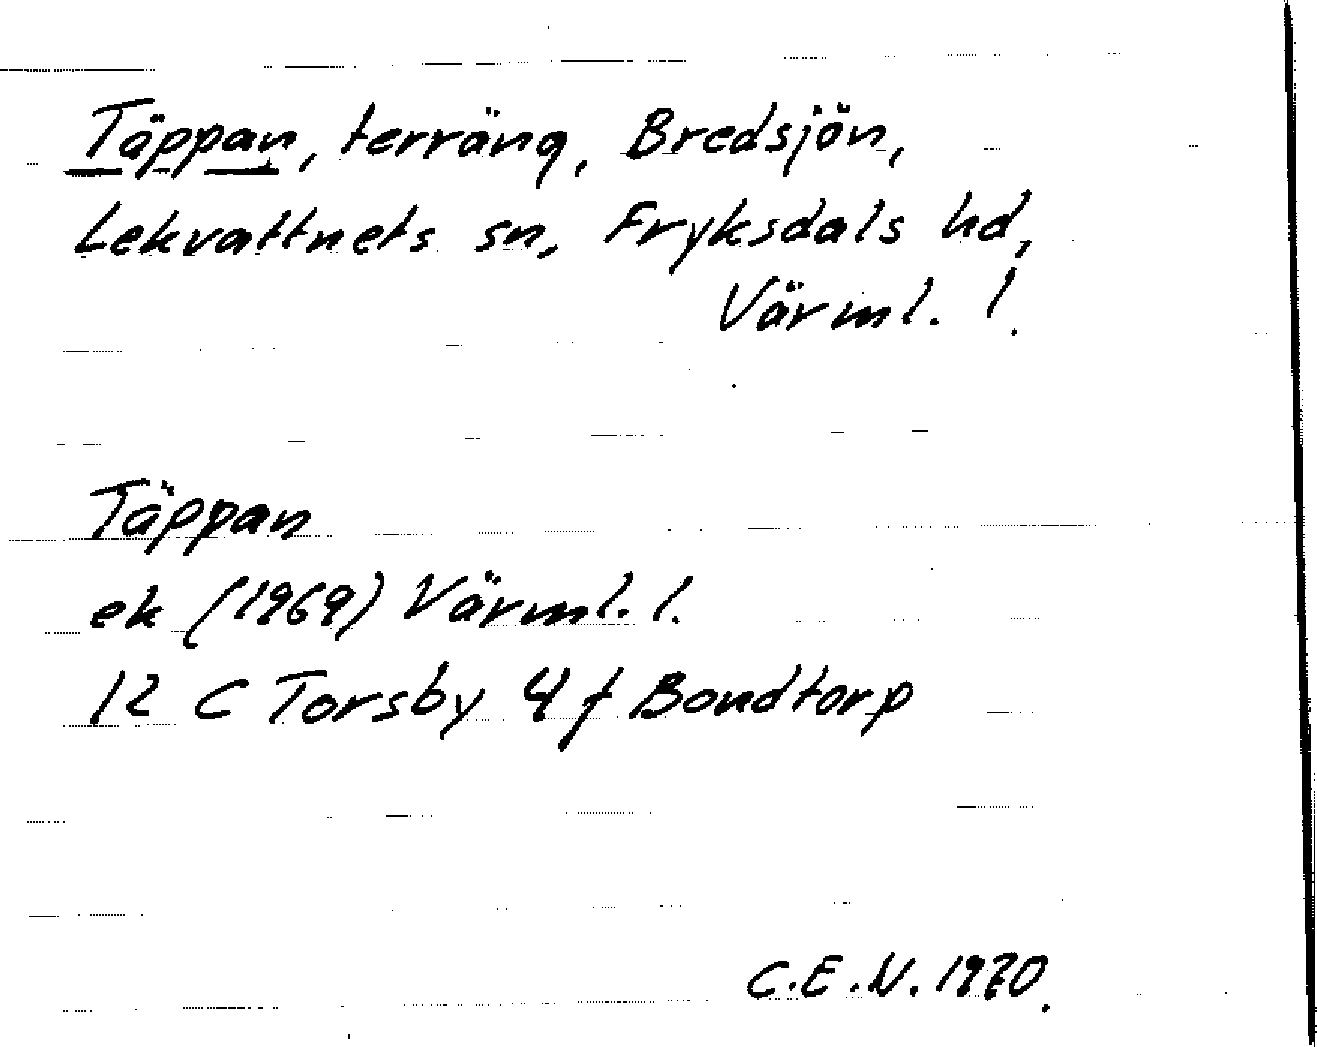 Täppan, terräng, Bredsjön,
Lekvattnets sn, Fryksdals hd,
Värml. l.
Täppan
ek (1969) Värml. l.
12 C Torsby 4 f Bondtorp
C.E.N. 1970.